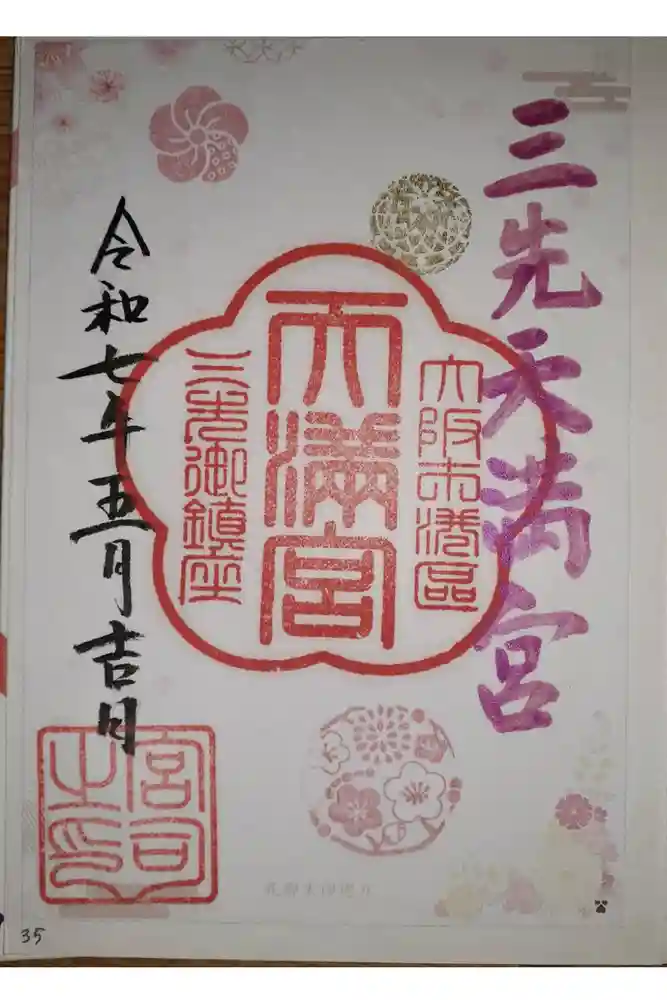 三先天満宮
大阪市港區
天満宮
三先御鎮座
令和七年五月吉日
宮司
之印
35